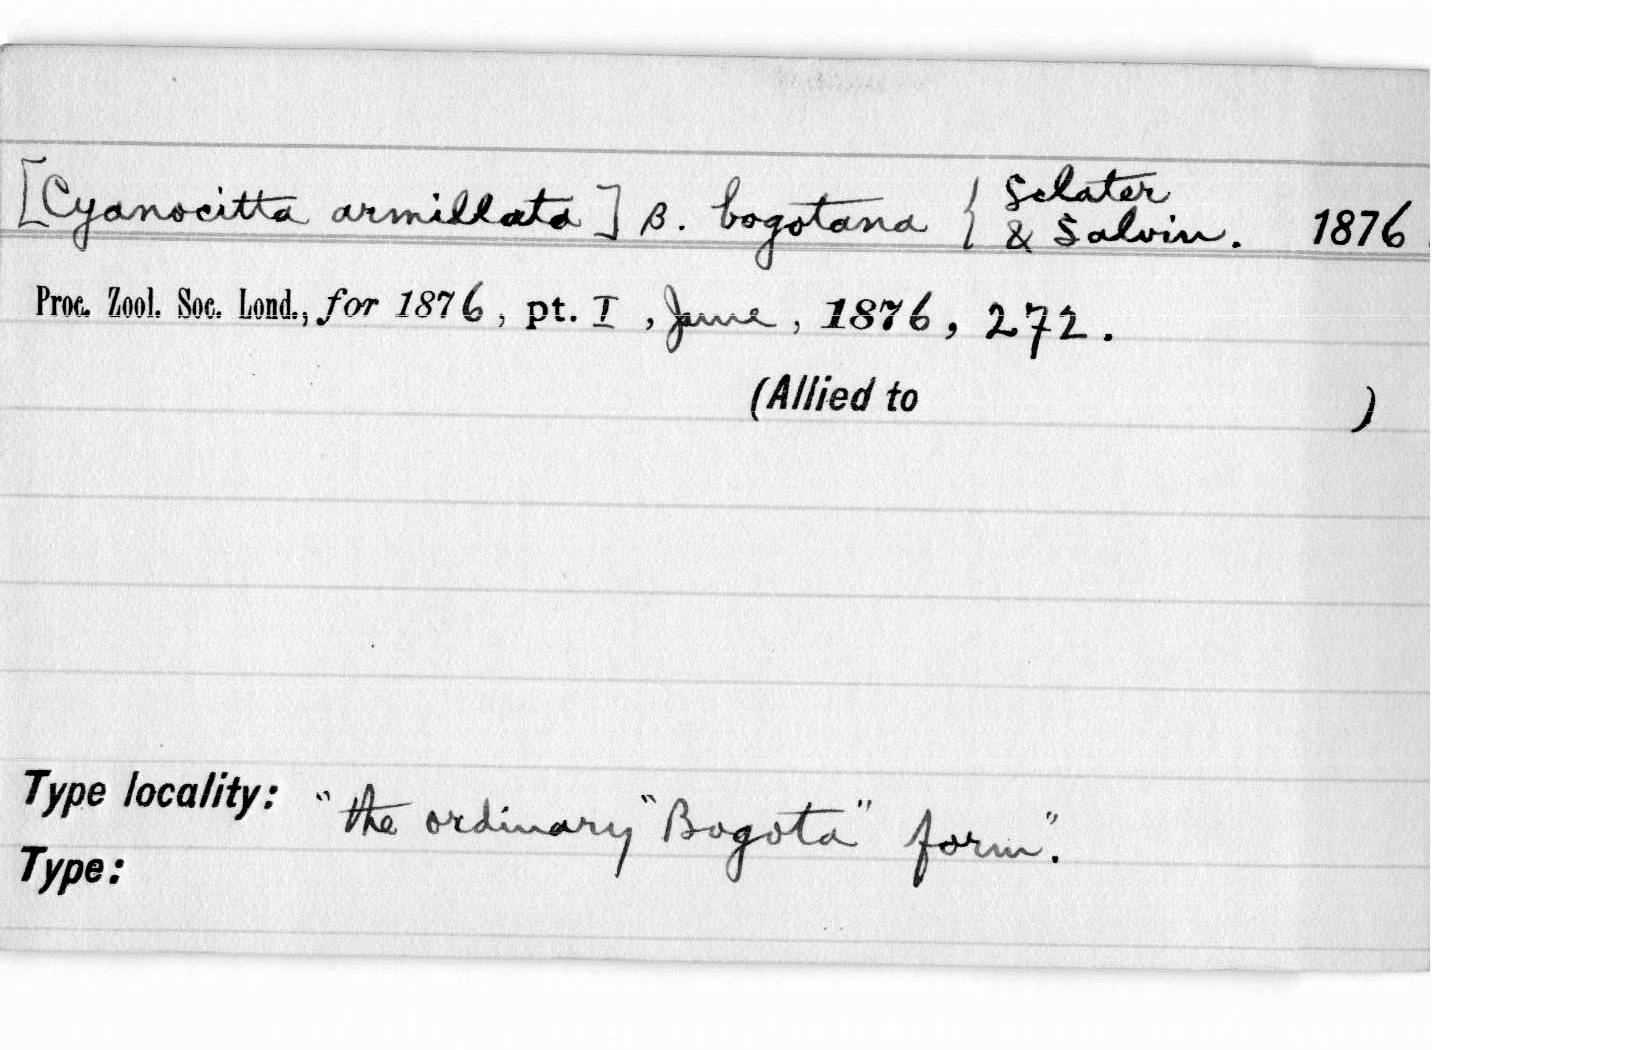 [Cyanocitta armillata] β. bogotana { Sclater
& Salvin. 1876.
Proc. Zool. Soc. Lond., for 1876, pt. I, June, 1876, 272.
(Allied to )
Type locality: "the ordinary "Bogota" form".
Type: